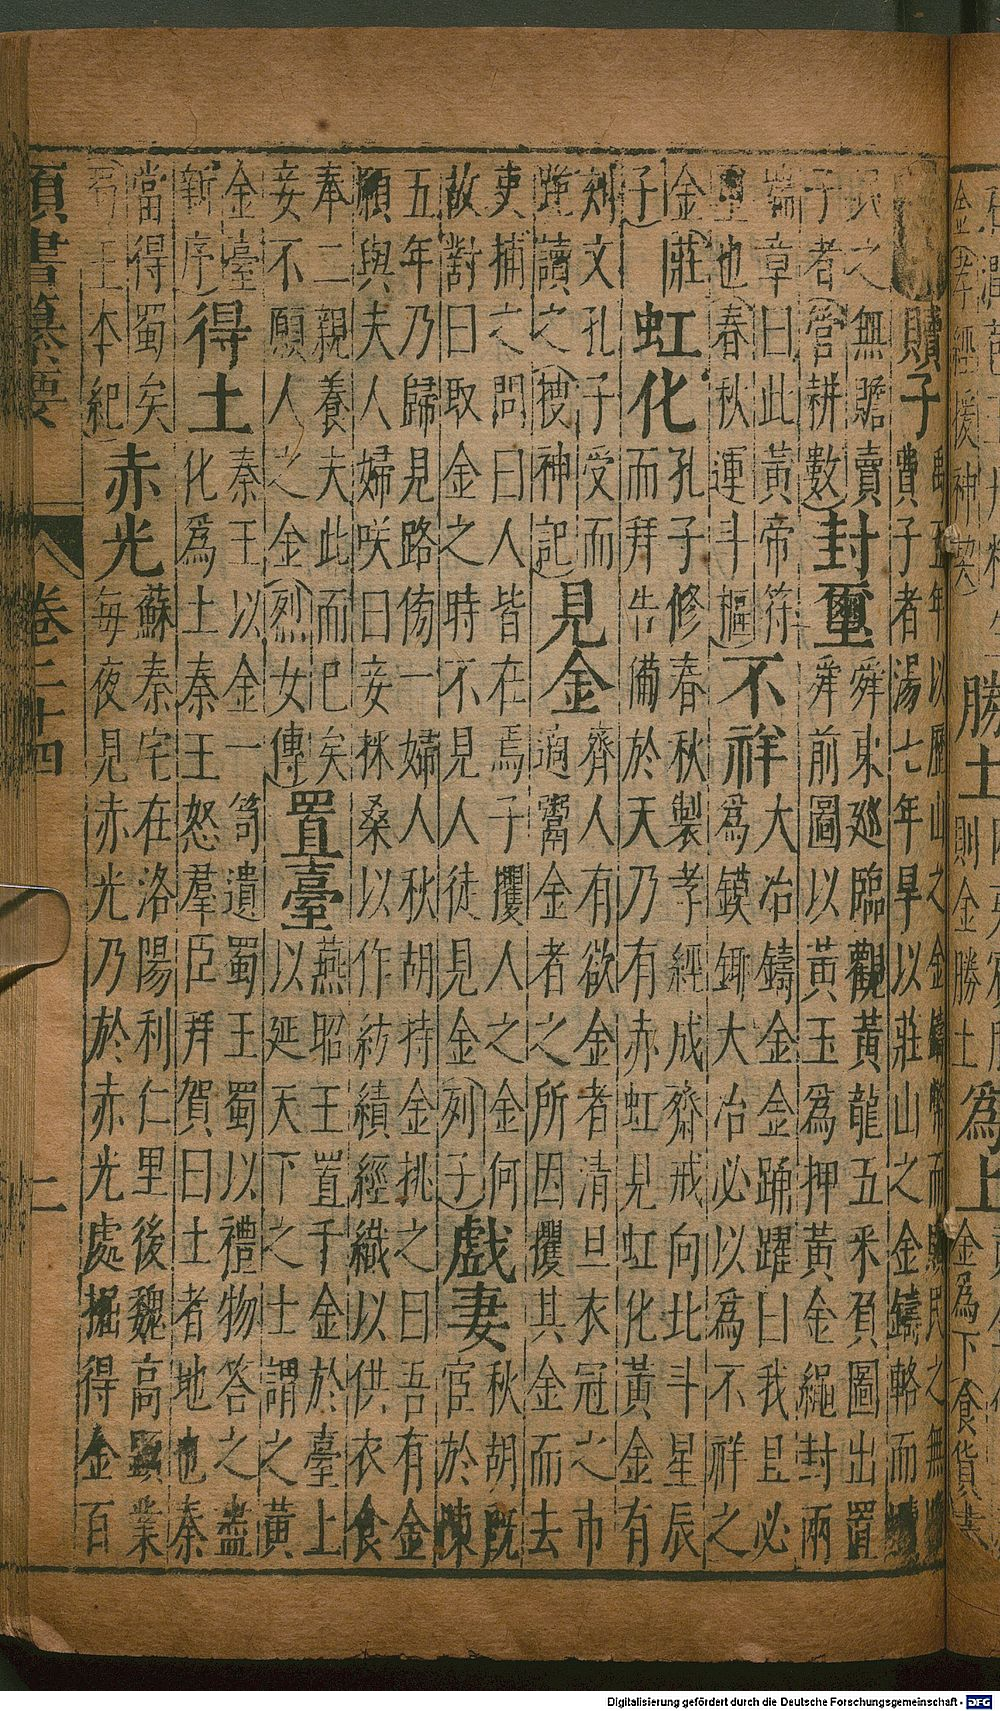 金(孝經援神契)
勝土
則金勝土
爲上
金爲下(食貨
贖子
禹五年以歷山之金鑄幣而贖民之無
費子者湯七年旱以莊山之金鑄輅而贖
民之無賣
子者(管耕數)
封璽
舜東廵臨觀黃龍五采負圖出置
舜前圖以黃玉爲押黃金繩封兩
端章曰此黃帝符
璽也(春秋運斗樞)
不祥
大冶鑄金金踊躍曰我且必
爲鏌鋣大冶必以爲不祥之
金(莊
子)
虹化
孔子修春秋製孝經成齋戒向北斗星辰
而拜告備於天乃有赤虹見虹化黃金有
刻文孔子受而
跪讀之(搜神記)
見金
齊人有欲金者清旦衣冠之市
適鬻金者之所因攫其金而去
吏捕之問曰人皆在焉子攫人之金何
故對曰取金之時不見人徒見金(列子)
戲妻
秋胡既
宦於陳
五年乃歸見路傍一婦人秋胡持金挑之曰吾有金
願與夫人婦咲曰妾採桑以作紡績經織以供衣食
奉二親養夫此而已矣
妾不願人之金(烈女傳)
置臺
燕昭王置千金於臺上
以延天下之士謂之黃
金臺(
新序)
得土
秦王以金一笥遺蜀王蜀以禮物答之盡
化爲土秦王怒羣臣拜賀曰土者地也秦
當得蜀矣
(蜀王本紀)
赤光
蘇秦宅在洛陽利仁里後魏高顯業
每夜見赤光乃於赤光處掘得金百
類書纂要
卷二十四
Digitalisierung gefördert durch die Deutsche Forschungsgemeinschaft - DFG